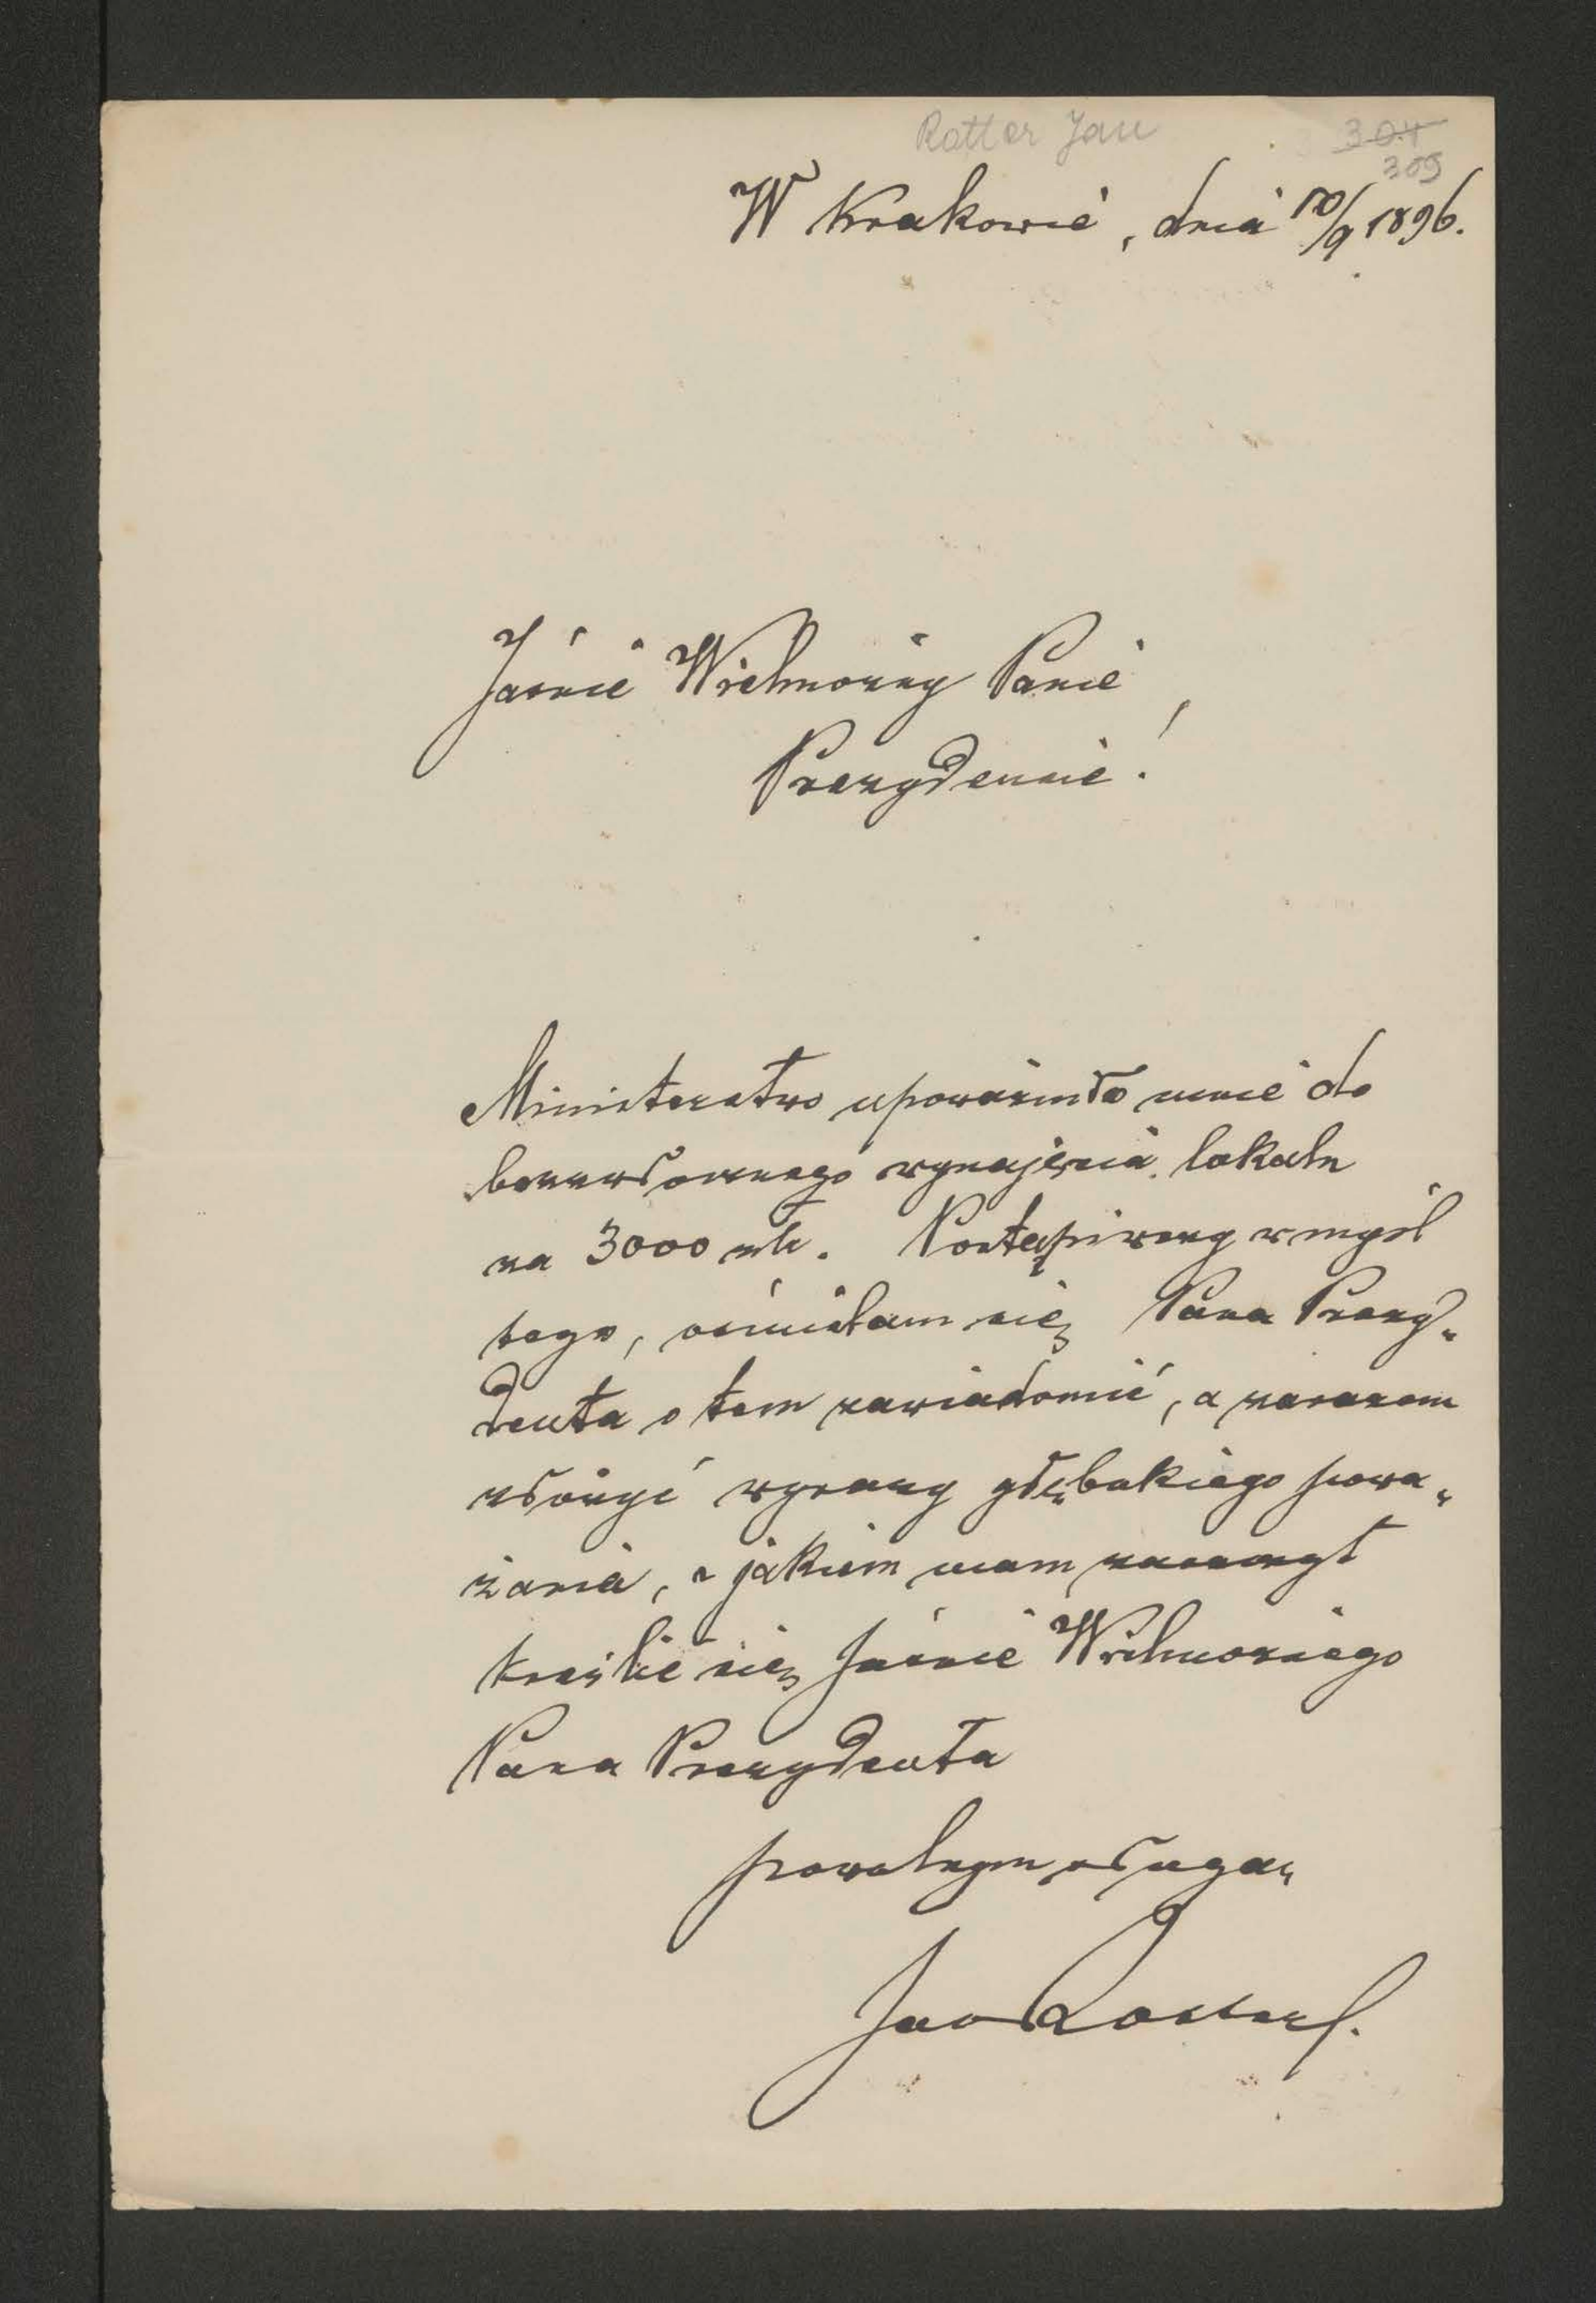 Rotter Jan
304
309
W Krakowie, dnia 10/9 1896.
Jaśnie Wielmożny Panie
Prezydencie!
Ministerstwo upoważniło mnie do
bezzwłocznego wynajęcia lokalu
za 3000 złr. Postąpiwszy w myśl
tego, ośmielam się Pana Prezy„
denta o tem zawiadomić, a zarazem
złożyć wyrazy głębokiego powa„
żania, z jakiem mam zaszczyt
kreślić się Jaśnie Wielmożnego
Pana Prezydenta
powolnym sługą„
Jan Rotter.